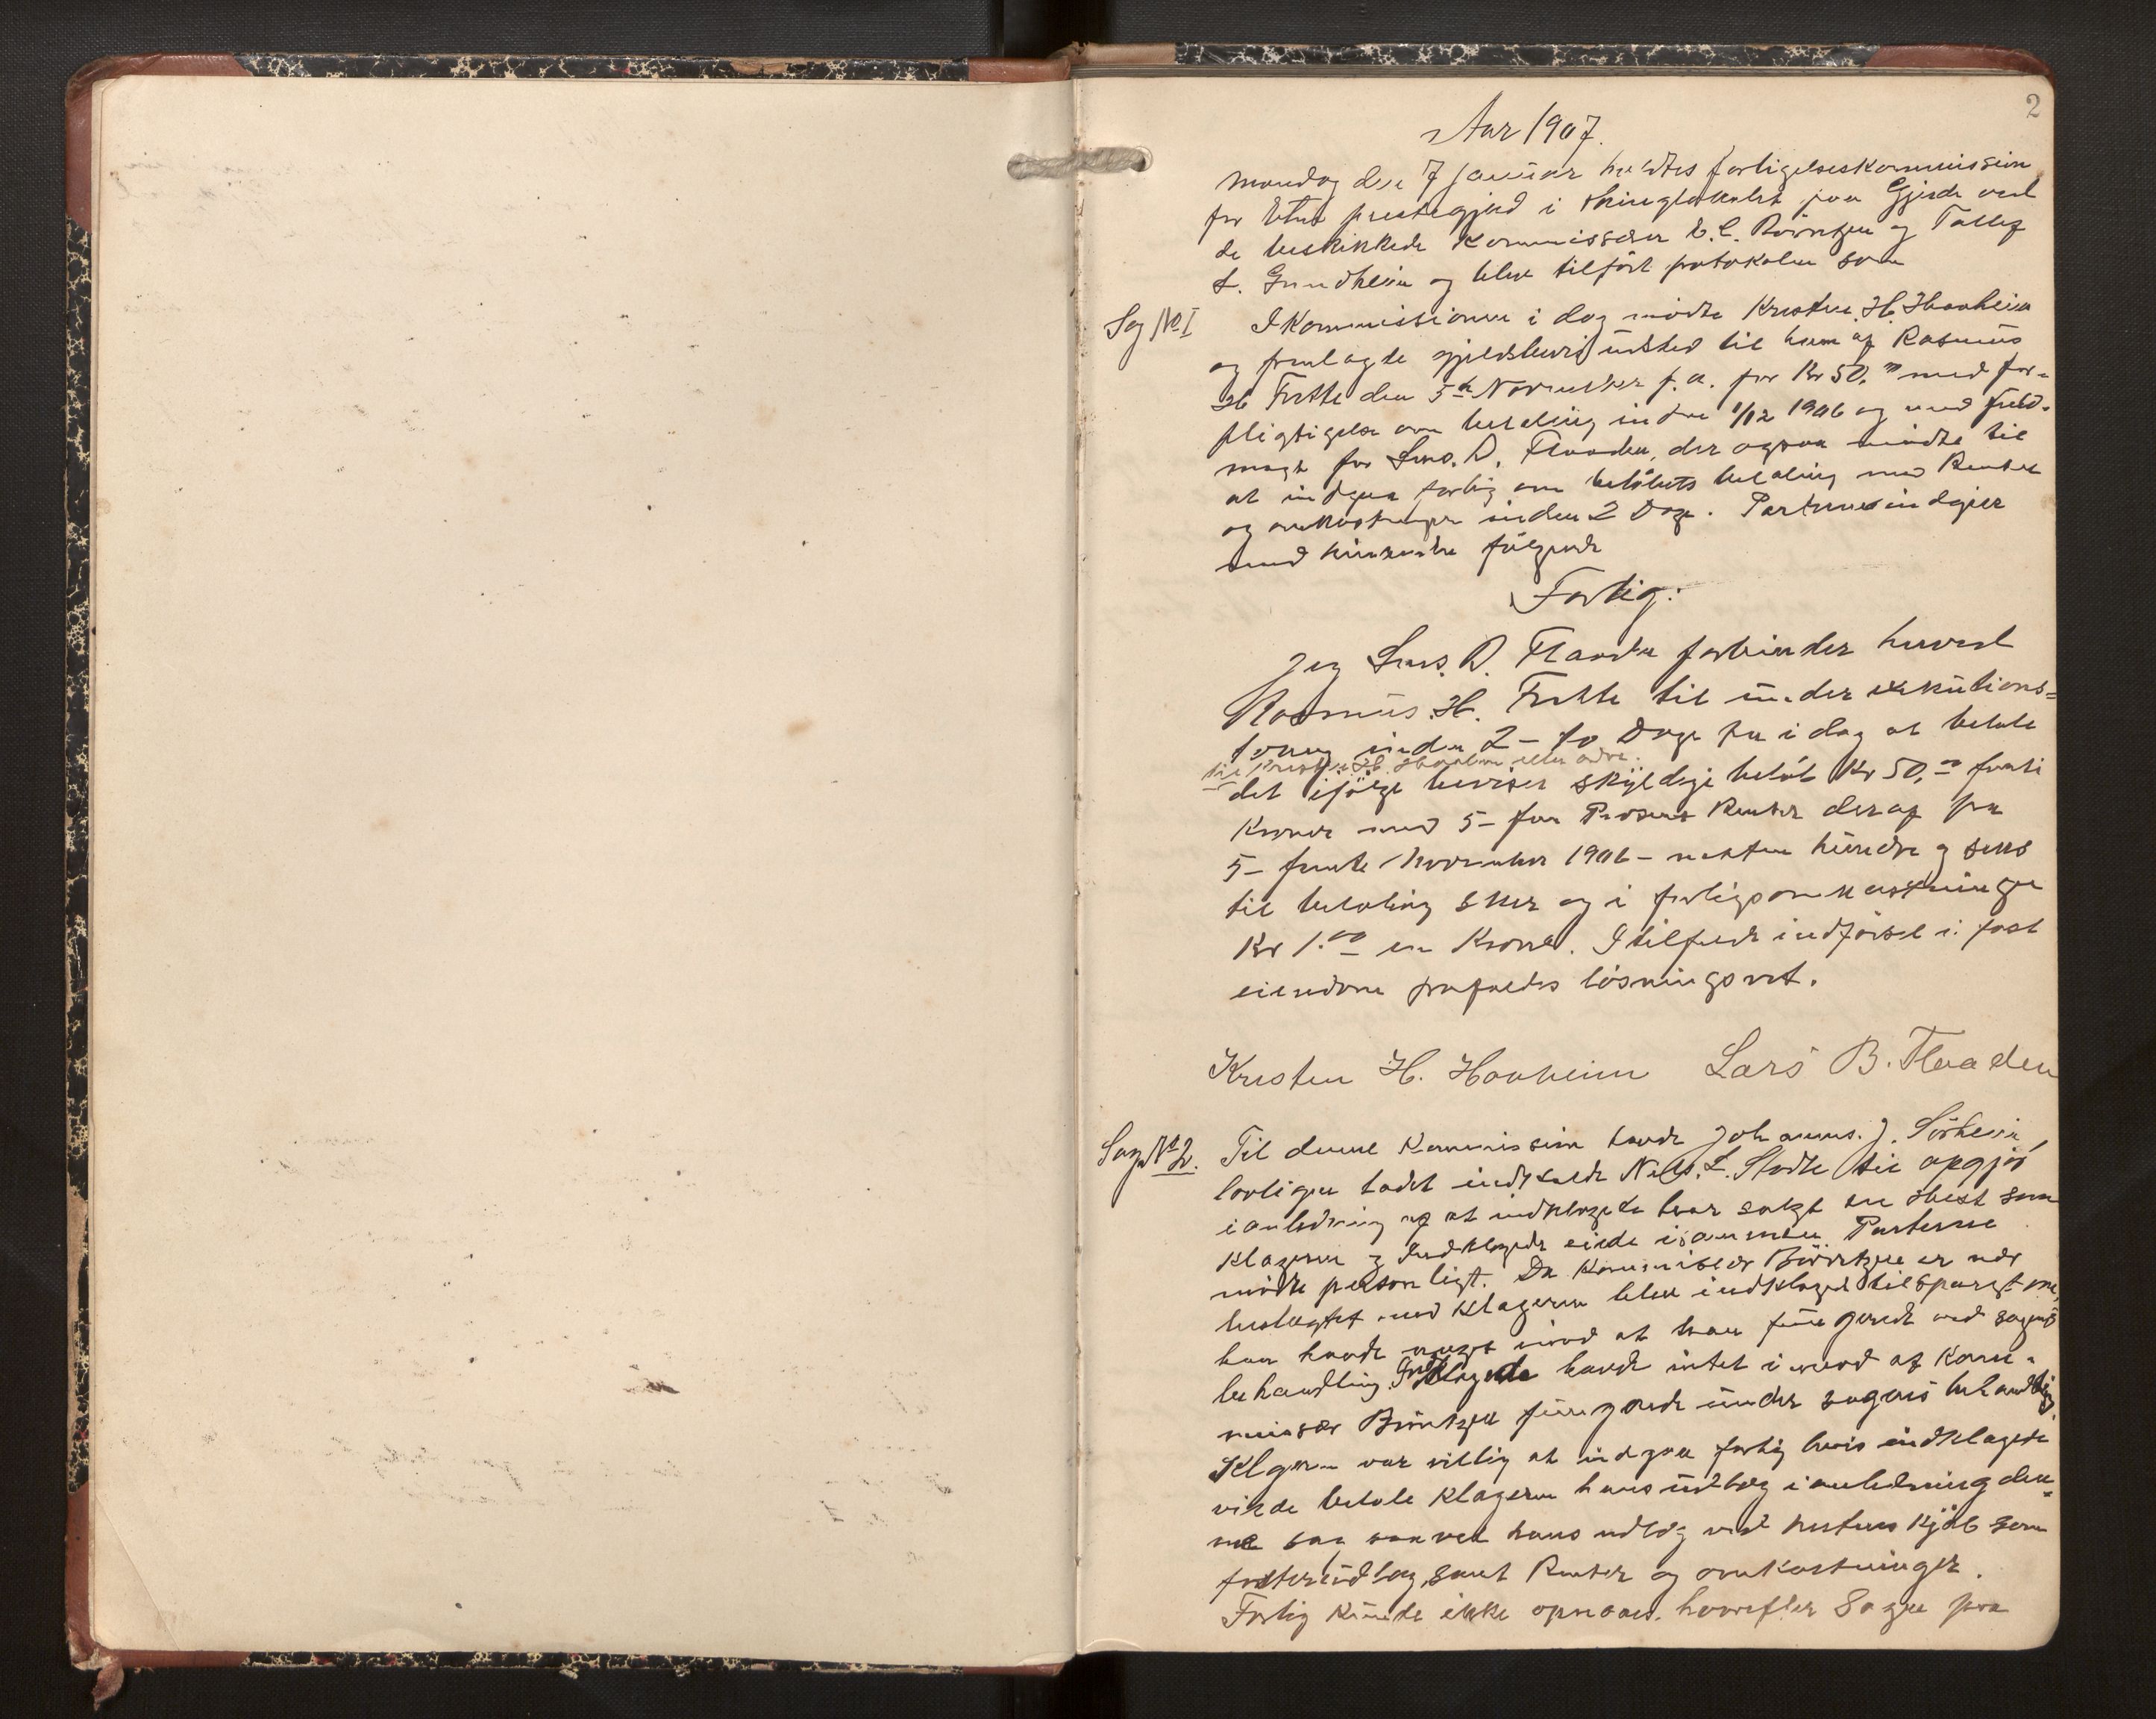 2
Aar 1907.
Mandag den 7 Januar holdtes forligelseskommission
for Etne prestegjeld i thinglokalet paa Gjerde ved
de beskikkede Kommissærer B. C. Börretzen og Tollef
L. Grindheim og blev tilfört protokolen som
Sag No 1 I Kommissionen i dag mödte Kristen H. Haaheim
og fremlagde gjeldsbevis udsted til ham af Rasmus
H. Frette den 5te November f. a. for Kr 50.00 med for-
pligtigelse om betaling inden 1/12 1906 og med fuld-
magt for Lars. B. Flaaden, der ogsaa mödte til
at indgaa forlig om belöbets betaling med Renter
og omkostninger inden 2 Dage. Parterne indgik
med hinanden fölgende
Forlig:
Jeg Lars. B. Flaaden forbinder herved
Rasmus. H. Frette til under exekutions-
tvang inden 2 - to Dage fra i dag at betale
til Kristen H. Haaheim eller ordre
det ifölge beviset skyldige belöb Kr 50,00 femti
Kroner med 5 - fem Prosent Renter deraf fra
5 - femte November 1906 - nitten hundre og seks
til betaling sker og i forligsomkostninger
Kr 1.00 en Krone. I tilfelde indförsel i fast
eiendom frafaldes lösningsret.
Kristen H. Haaheim Lars B. Flaaden
Sag No 2. Til denne Kommission havde Johannes. J. Sörheim
lovligen ladet indkalde Nils. L. Stödle til opgjör
i anledning af at indklagede har solgt en Hest som
klageren og Indklagede eiede isammen. Parterne
mödte personligt. Da Kommissær Börretzen er nær
beslegtet med klageren blev indklagede tilspurgt om
han havde noget imod at han fungerede ved sagens
behandling. Indklagede havde intet imod at Kom-
missær Börretzen fungerede under sagens behandling.
Klageren var villig at indgaa forlig hvis indklagede
vilde betale klageren hans udlæg i anledning den-
ne sag saavel hans udlæg ved hestens kjöb som
foster udlæg, samt Renter og omkostninger.
Forlig kunde ikke opnaaes. hvorefter Sagen paa